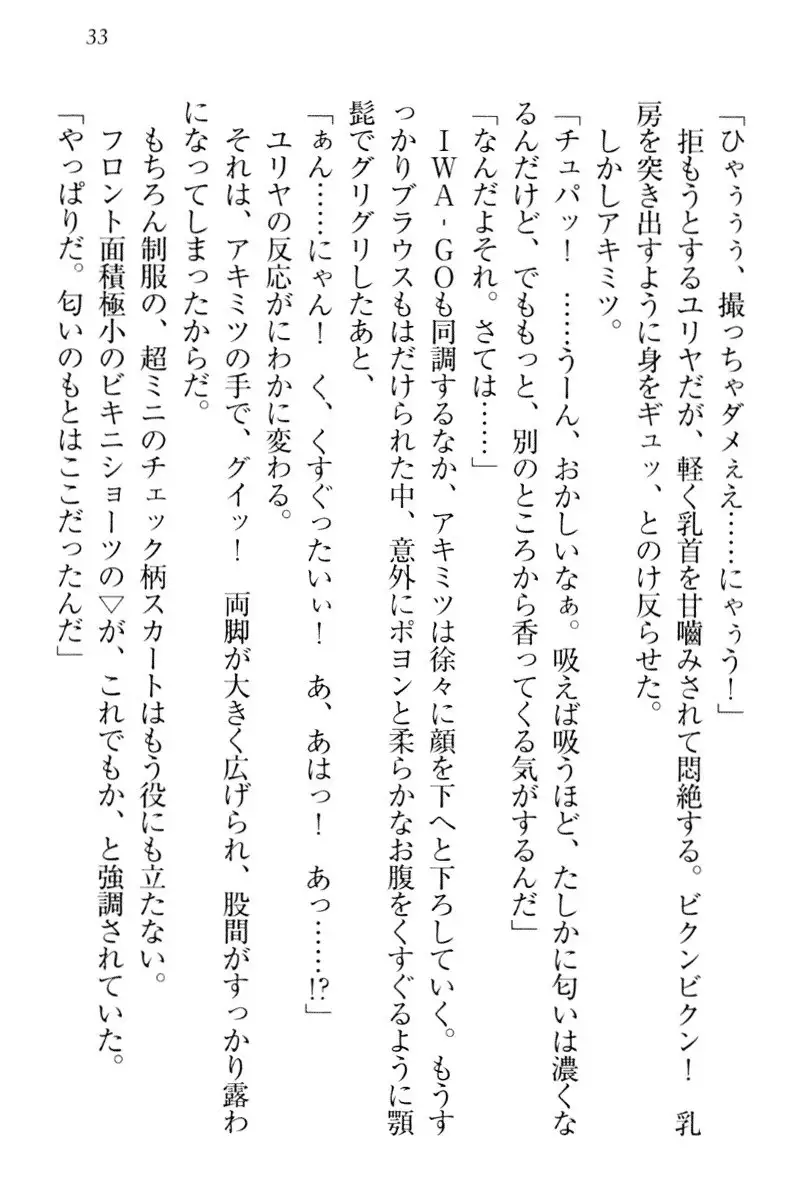 33
「ひゃぅぅぅ、撮っちゃダメぇえ……にゃぅう！」
拒もうとするユリヤだが、軽く乳首を甘嚙みされて悶絶する。ビクンビクン！　乳
房を突き出すように身をギュッ、とのけ反らせた。
しかしアキミツ。
「チュパッ！　……うーん、おかしいなぁ。吸えば吸うほど、たしかに匂いは濃くな
るんだけど、でももっと、別のところから香ってくる気がするんだ」
「なんだよそれ。さては……」
ＩＷＡ‐ＧＯも同調するなか、アキミツは徐々に顔を下へと下ろしていく。もうす
っかりブラウスもはだけられた中、意外にポヨンと柔らかなお腹をくすぐるように顎
髭でグリグリしたあと、
「ぁん……にゃん！　く、くすぐったいぃ！　あ、あはっ！　あっ……!?」
ユリヤの反応がにわかに変わる。
それは、アキミツの手で、グイッ！　両脚が大きく広げられ、股間がすっかり露わ
になってしまったからだ。
もちろん制服の、超ミニのチェック柄スカートはもう役にも立たない。
フロント面積極小のビキニショーツの▽が、これでもか、と強調されていた。
「やっぱりだ。匂いのもとはここだったんだ」